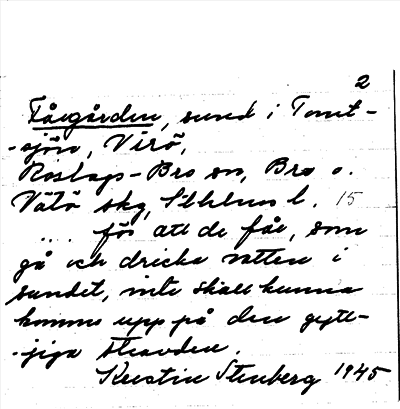 2
Fårgården, sund i Tomt-
-sjön, Virö,
Roslags-Bro sn, Bro o.
Vätö skg, Sthlms l. 15
... för att de får, som
gå och dricka vatten i
sundet, inte skall kunna
komma upp på den gytt-
-jiga stranden.
Kerstin Stenberg 1945